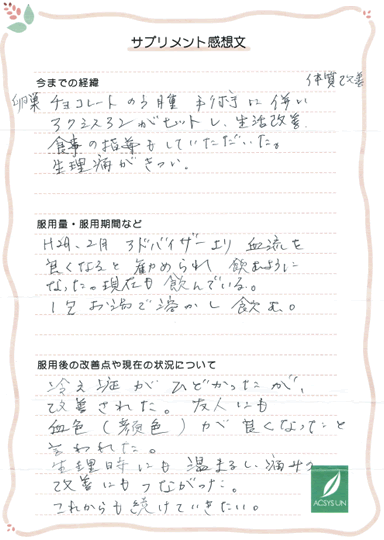 サプリメント感想文
今までの経緯
体質改善
卵巣 チョコレートのう腫 手術に伴い
し、生活改善
食事の指導もしていただいた。
生理痛がきつい。
服用量・服用期間など
2月 アドバイザーより 血流を
良くなると勧められ 飲むように
なった。現在も飲んでいる。
1包 お湯で溶かし 飲む。
服用後の改善点や現在の状況について
冷え症がひどかったが、
改善された。友人にも
血色(顔色)が良くなったと
言われた。
生理時にも 温まるし、痛みの
改善にもつながった。
これからも続けていきたい。
ACSYSUN